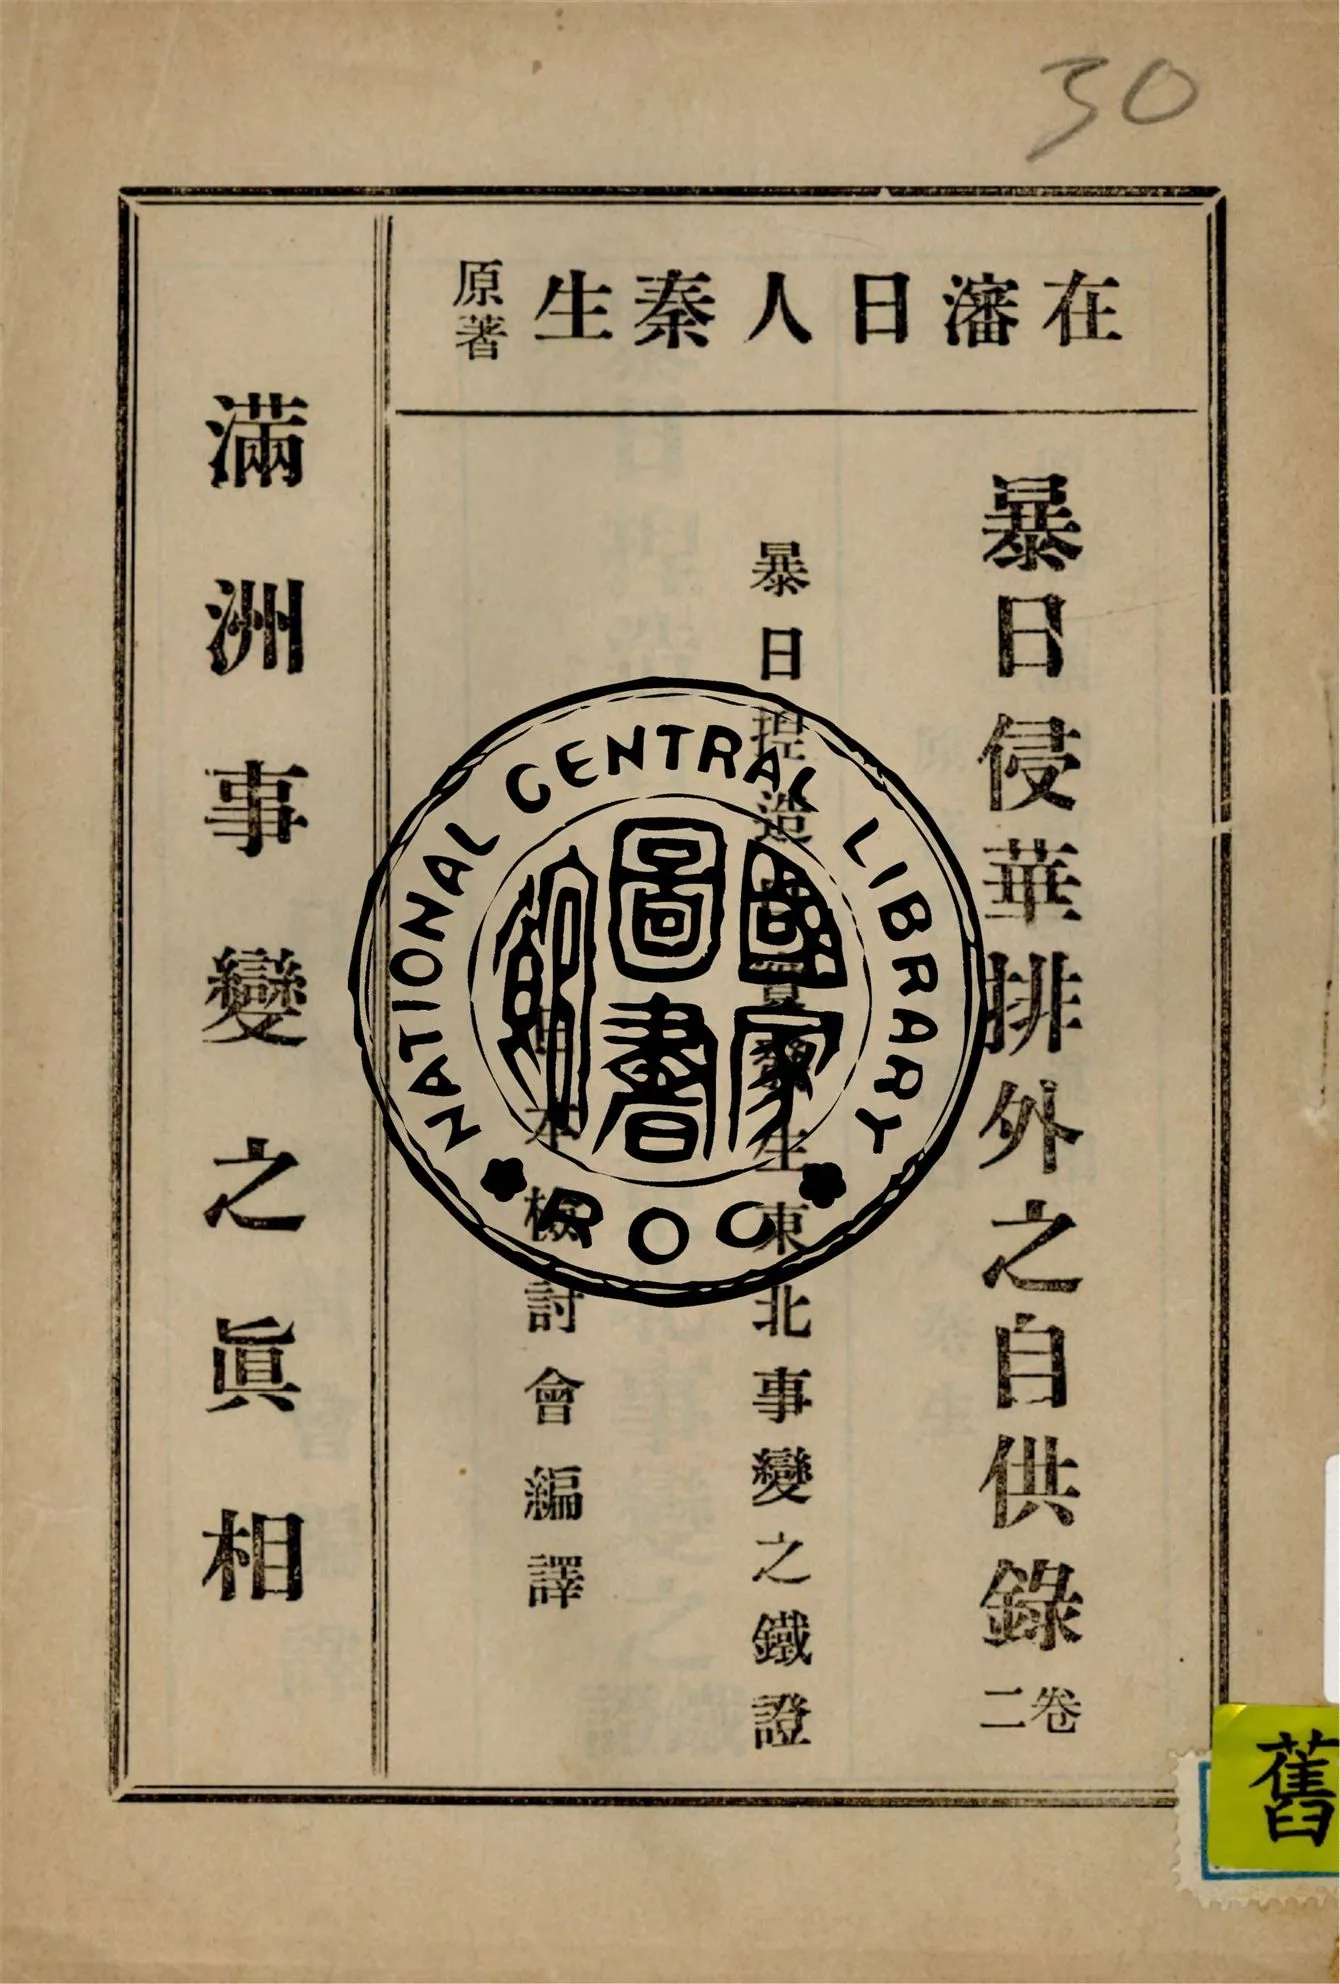 30
在瀋日人秦生原著
暴日侵華排外之自供錄 卷二
暴日捏造口實發生東北事變之鐵證
日本檢討會編譯
滿洲事變之眞相
NATIONAL CENTRAL LIBRARY
國家圖書館
ROC
舊